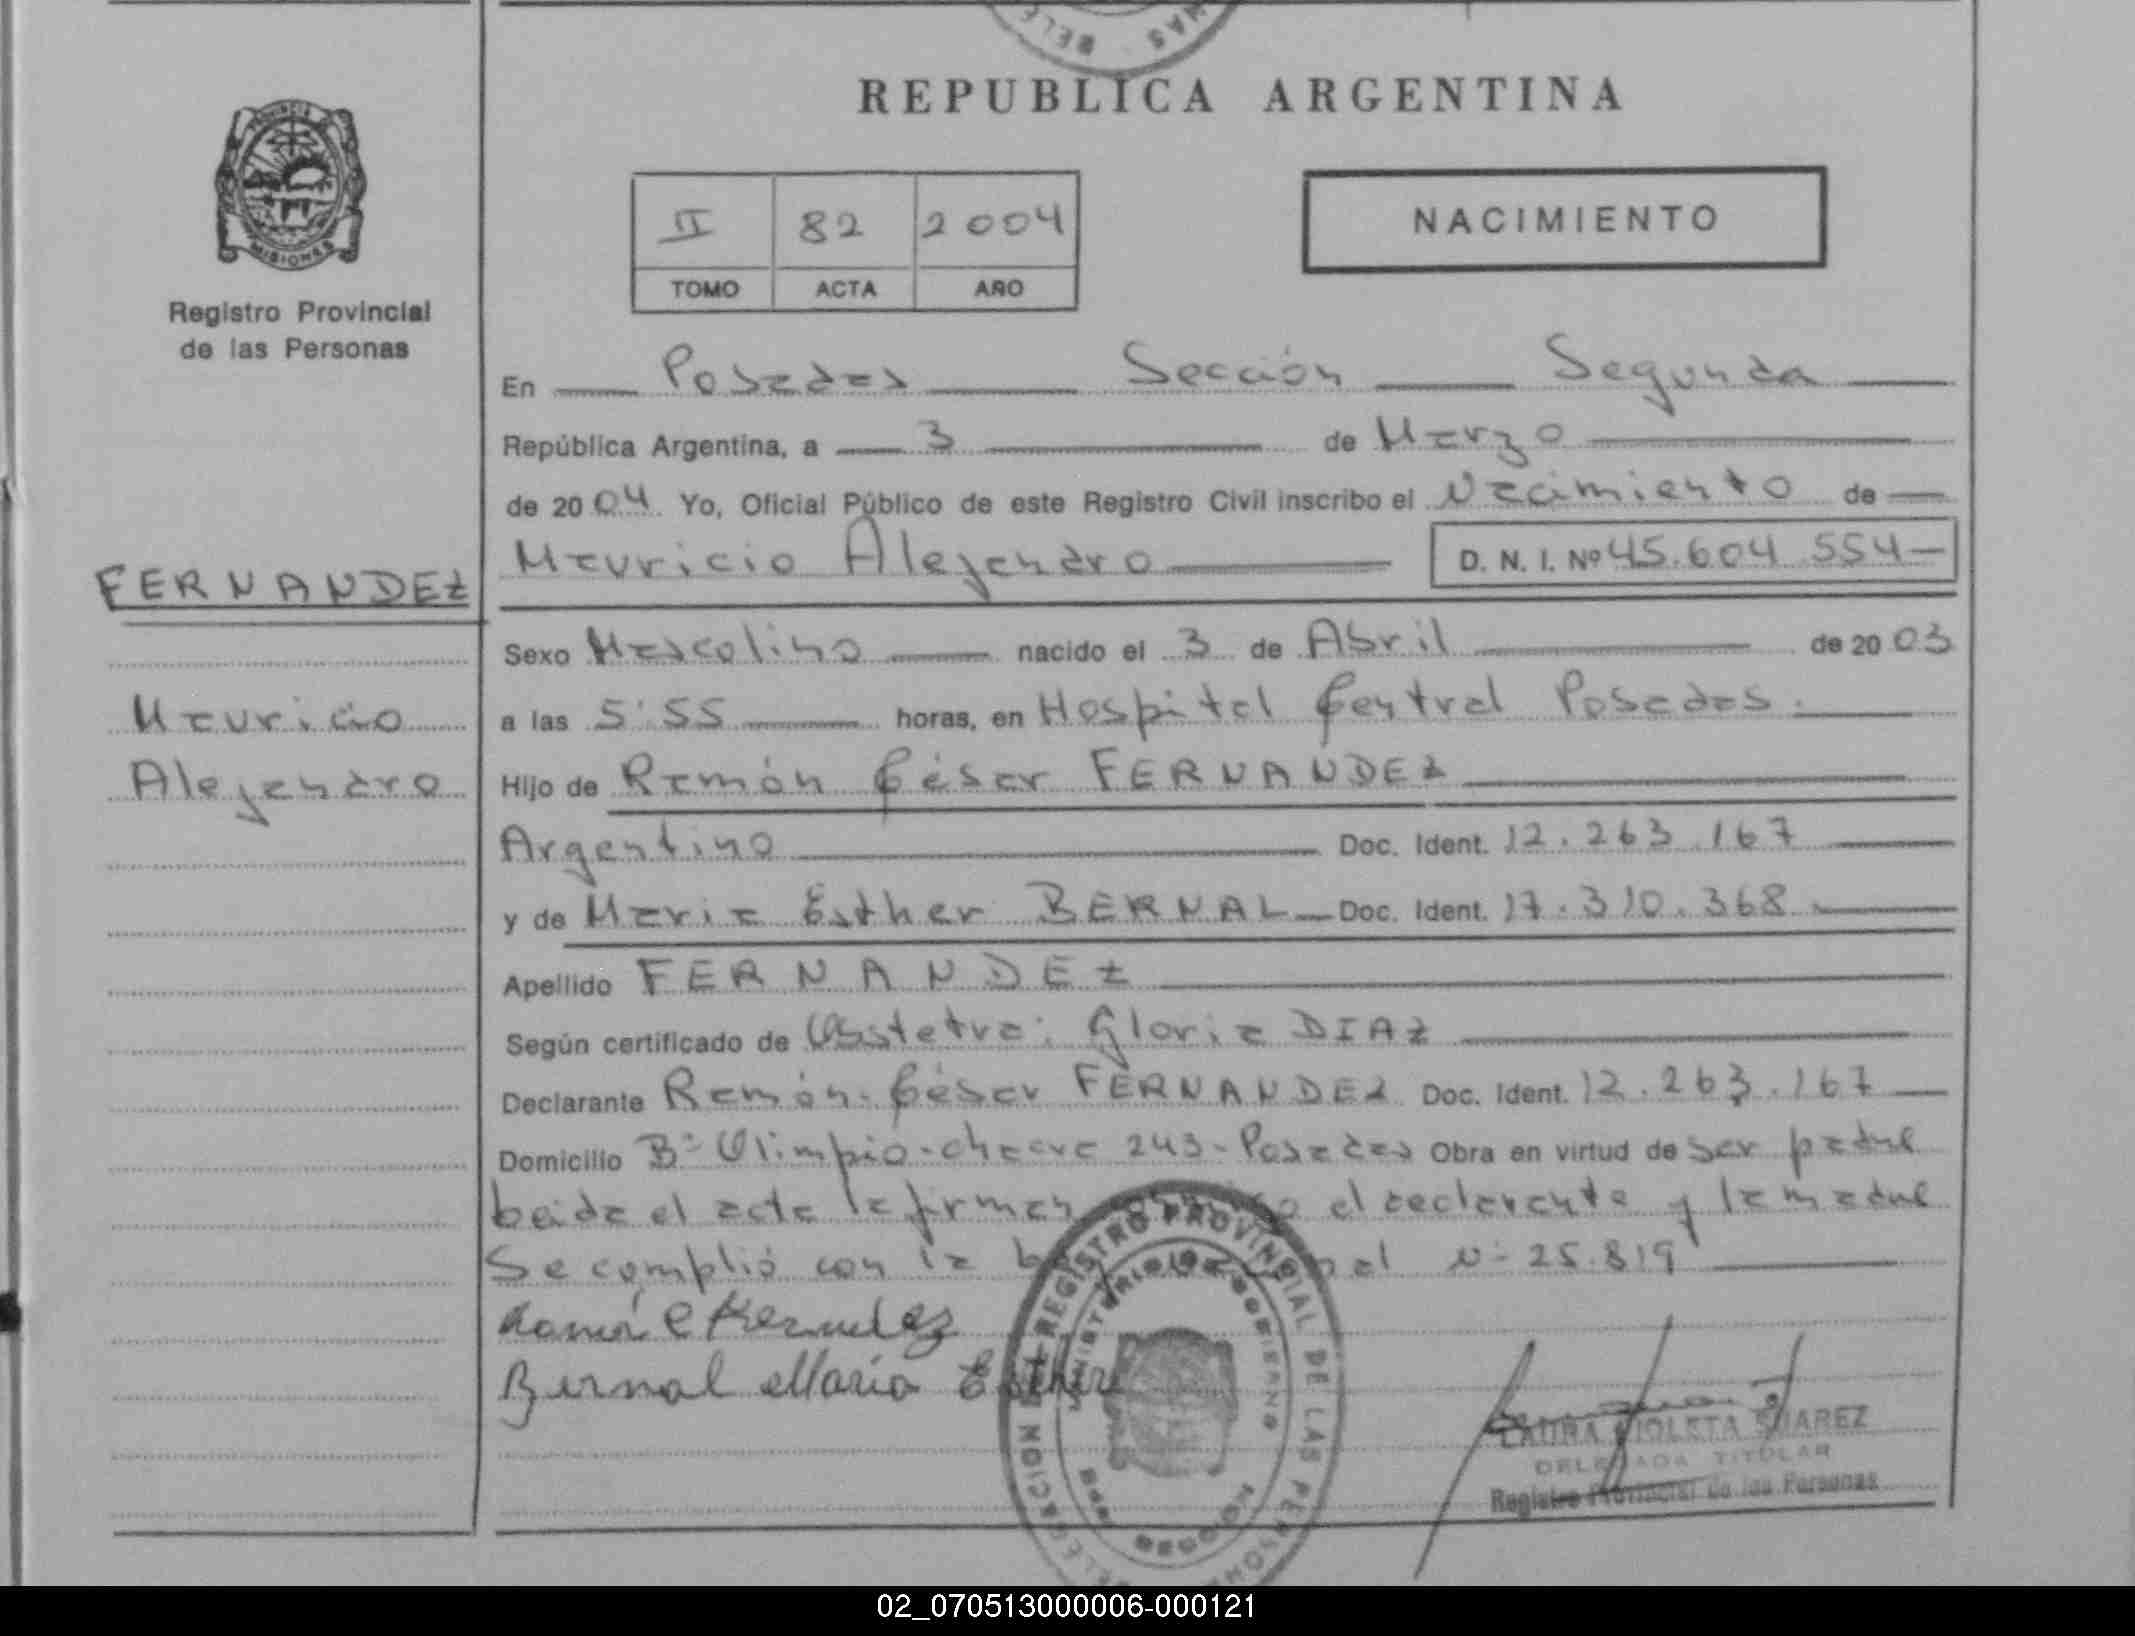 REPUBLICA ARGENTINA
PROVINCIA
MISIONES
Registro Provincial
de las Personas
II 82 2004
TOMO ACTA AÑO
NACIMIENTO
En Posadas Sección Segunda
República Argentina, a 3 de Marzo
de 2004. Yo, Oficial Público de este Registro Civil inscribo el Nacimiento de
Mauricio Alejandro D. N. I. Nº 45.604 554
FERNANDEZ
Mauricio
Alejandro
Sexo Mascolino nacido el 3 de Abril de 2003
a las 5'55 horas, en Hospital Central Posadas.
Hijo de Ramón César FERNANDEZ
Argentino Doc. Ident. 12.263.167
y de Maria Esther BERNAL Doc. Ident. 17.310.368.
Apellido FERNANDEZ
Según certificado de Obstetra: Gloria DIAZ
Declarante Ramón César FERNANDEZ Doc. Ident. 12.263.167
Domicilio Bº Olimpio-chacra 243-Posadas Obra en virtud de ser padre
Leida el acta la firman el declarante y la madre
Se complió con la Nº 25.819
Ramón C Fernandez
Bernal Maria Esther
REGISTRO PROVINCIAL DE LAS PERSONAS
MINISTERIO DE GOBIERNO
LAURA VIOLETA SUAREZ
DELEGADA TITULAR
Registro Provincial de las Personas
02_070513000006-000121